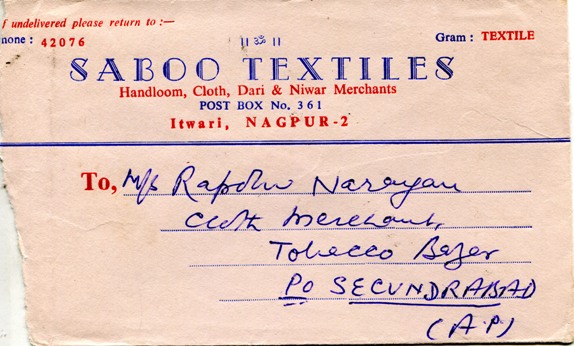 f undelivered please return to :—
none : 42076
|| ॐ ||
Gram : TEXTILE
SABOO TEXTILES
Handloom, Cloth, Dari & Niwar Merchants
POST BOX No. 361
Itwari, NAGPUR-2
To, M/s Narayan
Cloth Merchant,
Tobecco Bazer
PO SECUNDRABAD
(A.P.)